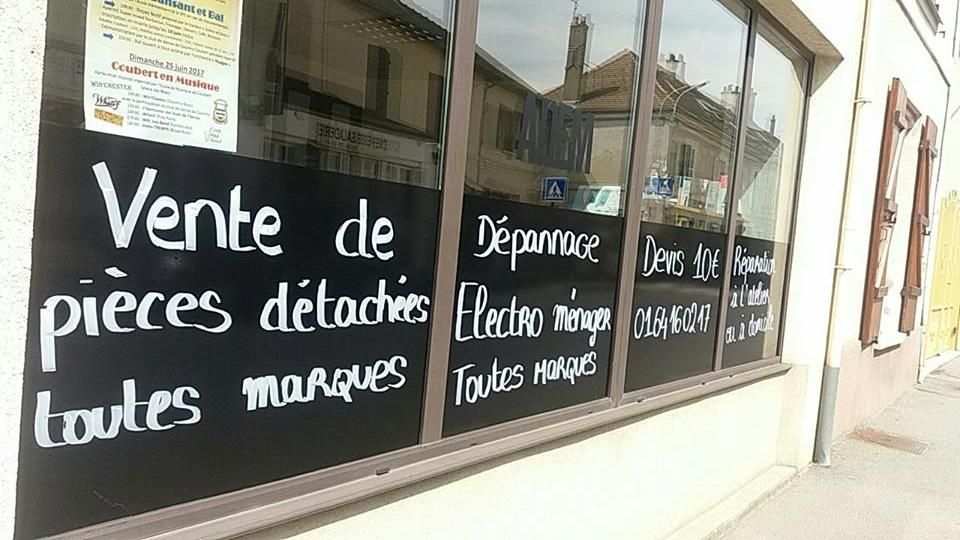 Dansant et Bal
Dimanche 25 juin 2017
Coubert en Musique
WINCHESTER
Vente de
pièces détachées
toutes marques
Dépannage
Electro ménager
Toutes Marques
Devis 10€
01.64.16.02.17
Réparation
à l'atelier
ou à domicile